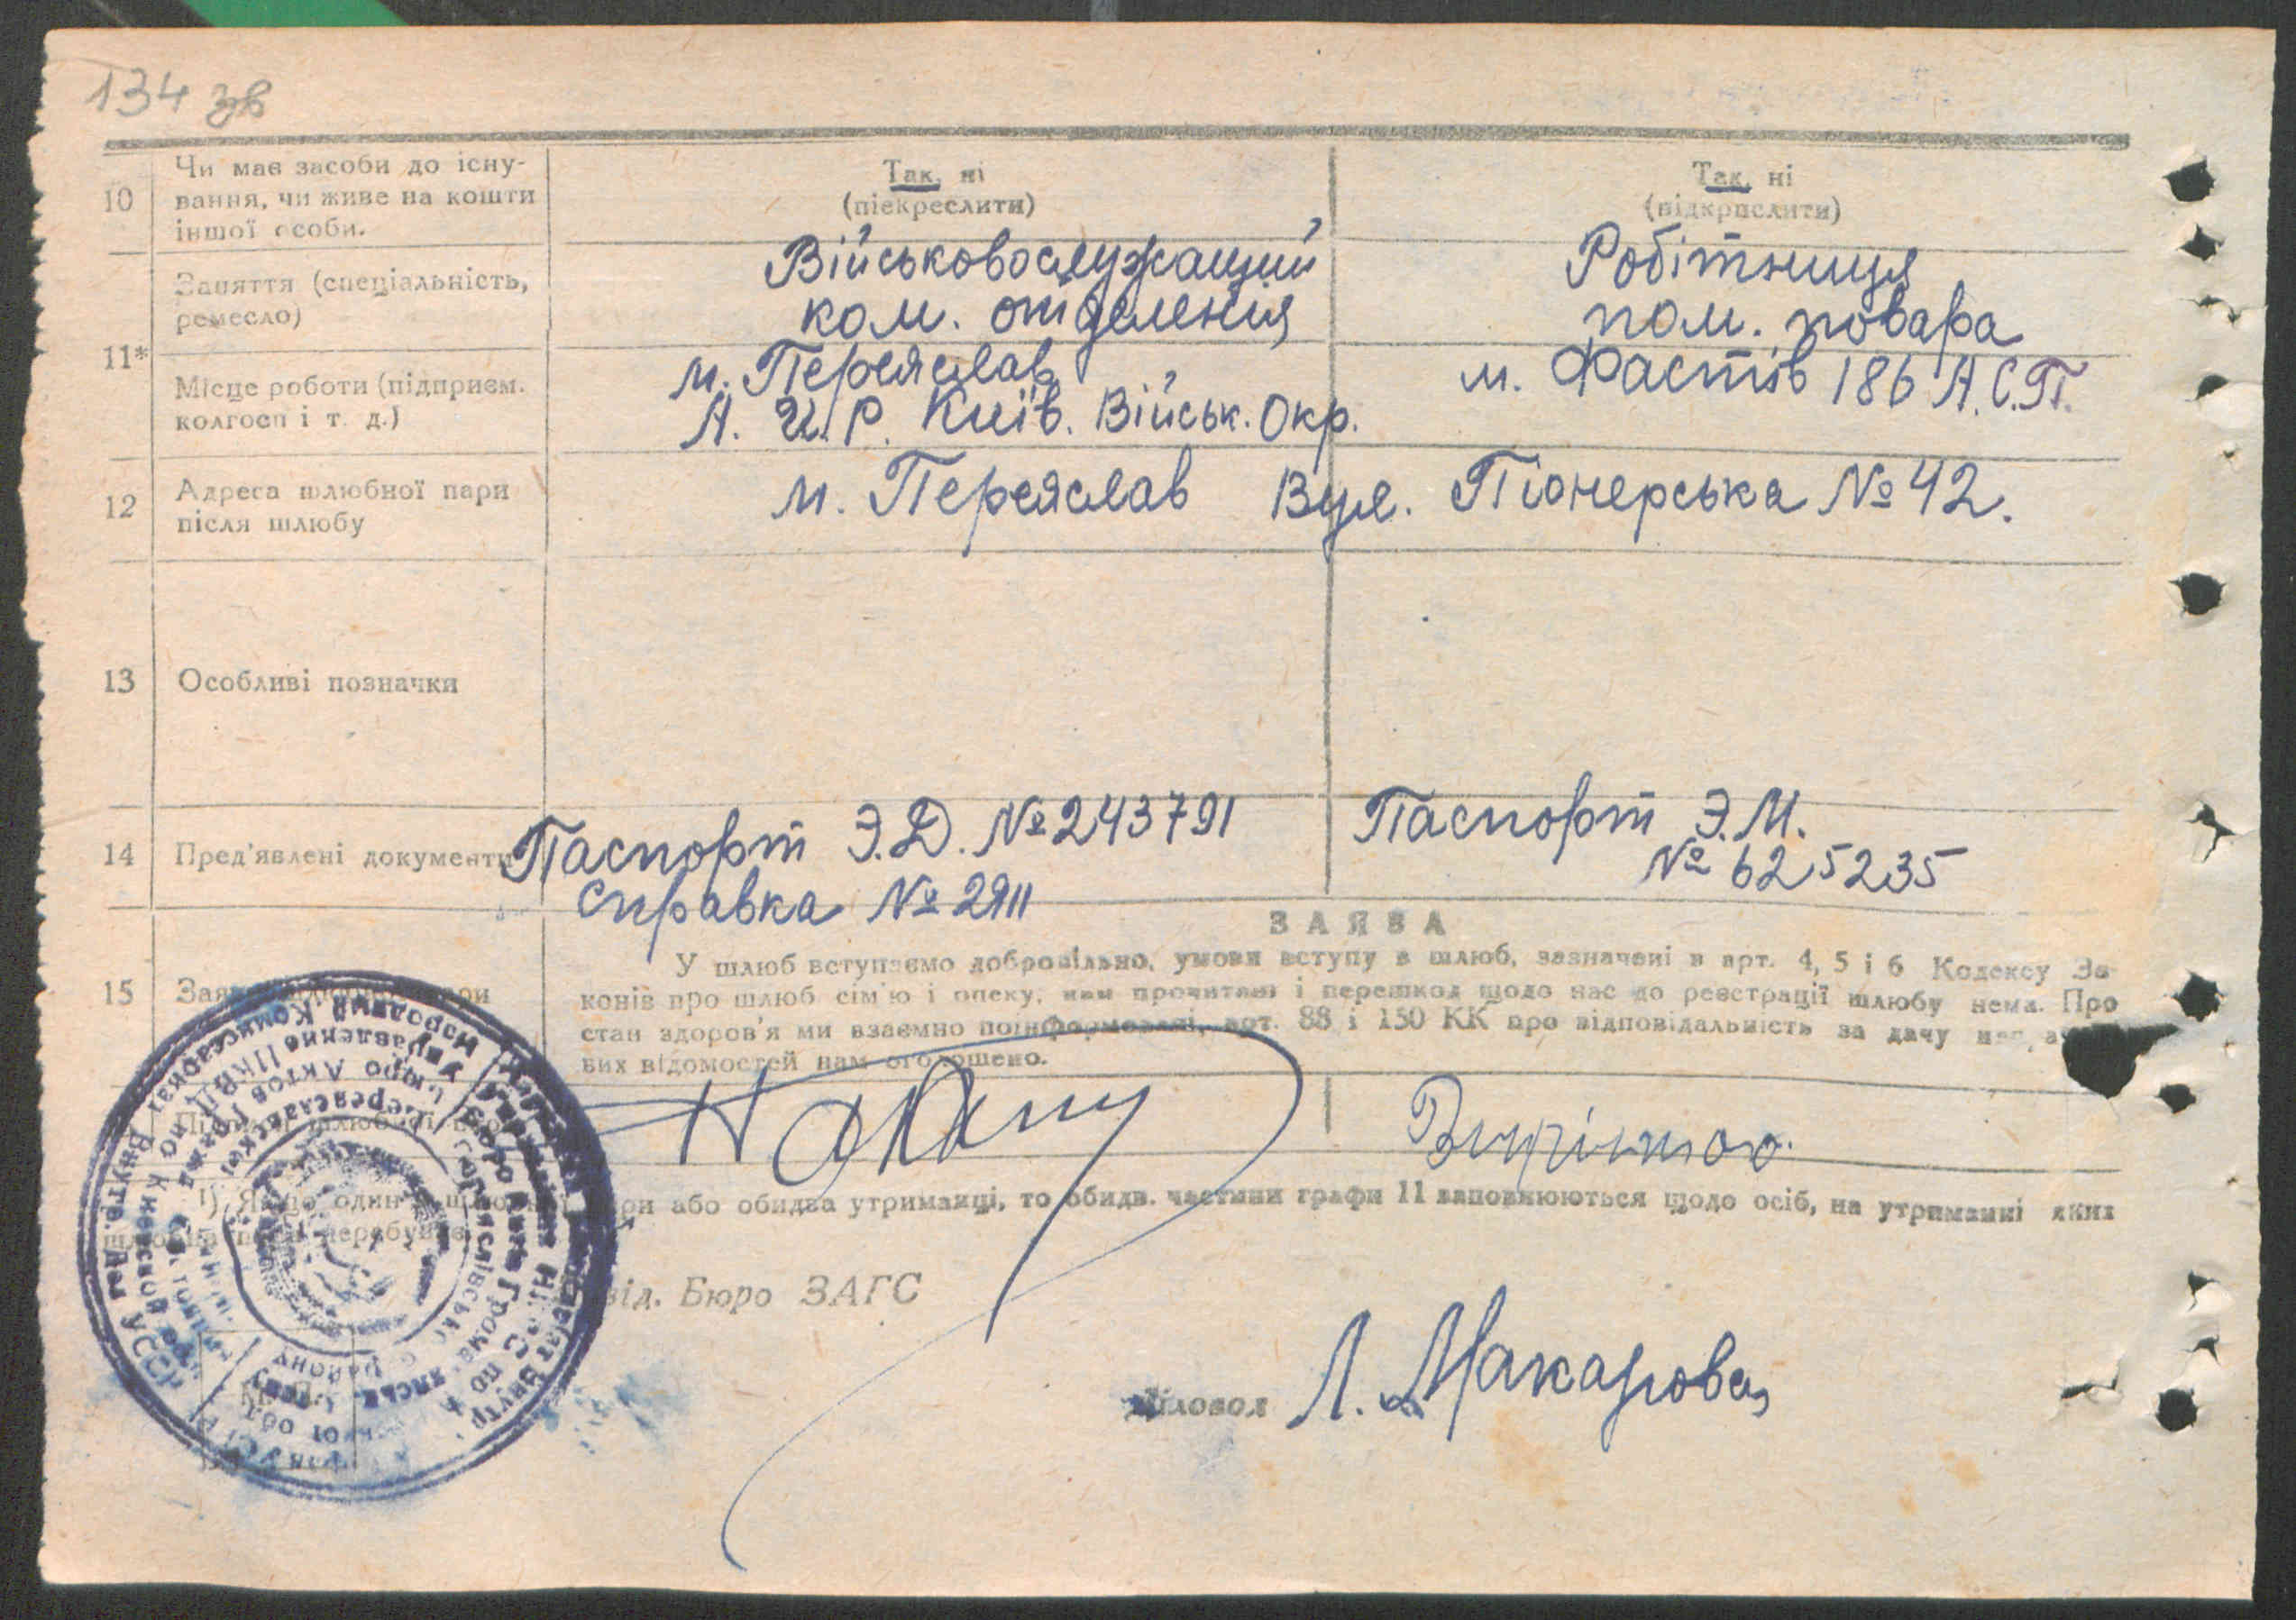 134 зв
10 Чи має засоби до існу-
вання, чи живе на кошти
іншої особи.
Так, ні
(піекреслити)
Так, ні
(відкрпслити)
11*
Заняття (спеціальність,
ремесло)
Військовослужащий
ком. отіделенія
Робітниця
пом. повара
Місце роботи (підприєм.
колгосп і т. д.)
м. Переяслав
Київ. Військ. Окр.
м. Фастів 186 А.С.П.
12 Адреса шлюбної пари
після шлюбу
м. Переяслав Вул. Піонерська № 42.
13 Особливі позначки
14 Пред'явлені документи
Паспорт Э.Д. № 243791
Справка № 2911
Паспорт Э.М.
№ 625235
15
ЗАЯВА
У шлюб вступаємо добровільно, умови вступу в шлюб, зазначені в арт. 4, 5 і 6 Кодексу За-
конів про шлюб сім'ю і опеку, нам прочитані і перешкод щодо нас до реєстрації шлюбу нема. Про
стан здоров'я ми взаємно поінформовані, арт. 88 і 150 КК про відповідальність за дачу
вих відомостей нам оголошено.
1) Якщо один з або обидва утриманці, то обидв. частини графи 11 заповнюються щодо осіб, на утриманні яких
від. Бюро ЗАГС
Діловод Л. Макарова